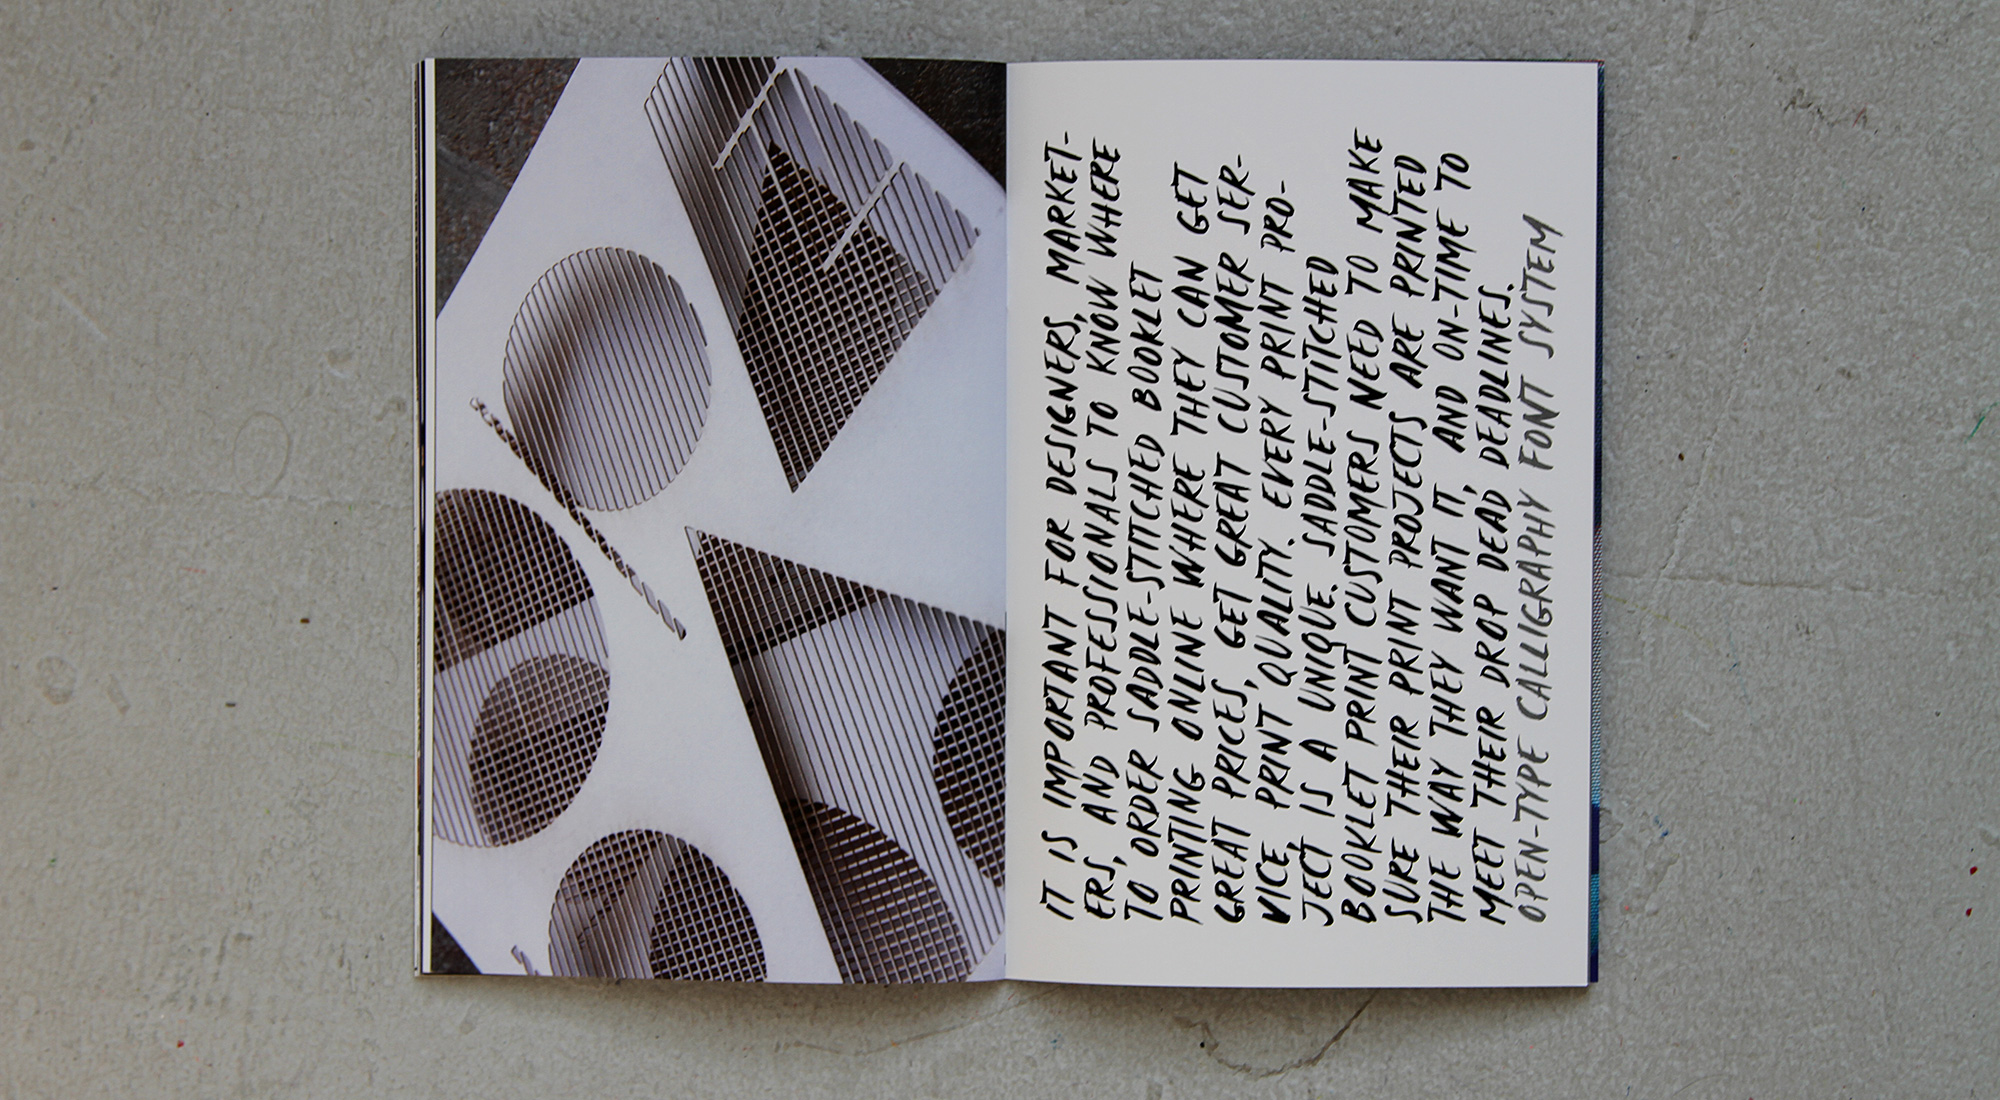 IT IS IMPORTANT FOR DESIGNERS, MARKET-
ERS, AND PROFESSIONALS TO KNOW WHERE
TO ORDER SADDLE-STITCHED BOOKLET
PRINTING ONLINE WHERE THEY CAN GET
GREAT PRICES, GET GREAT CUSTOMER SER-
VICE, PRINT QUALITY. EVERY PRINT PRO-
JECT IS A UNIQUE. SADDLE-STITCHED
BOOKLET PRINT CUSTOMERS NEED TO MAKE
SURE THEIR PRINT PROJECTS ARE PRINTED
THE WAY THEY WANT IT, AND ON-TIME TO
MEET THEIR DROP DEAD DEADLINES.
OPEN-TYPE CALLIGRAPHY FONT SYSTEM